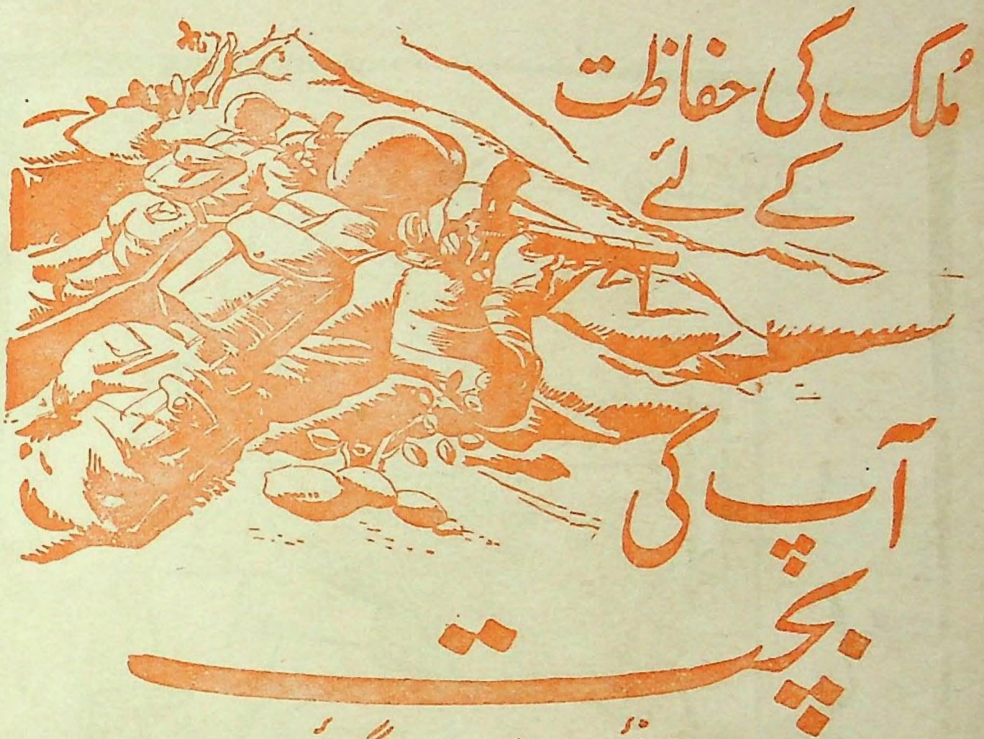 مُلک کی حفاظت
کے لئے
آپ کی
بچت